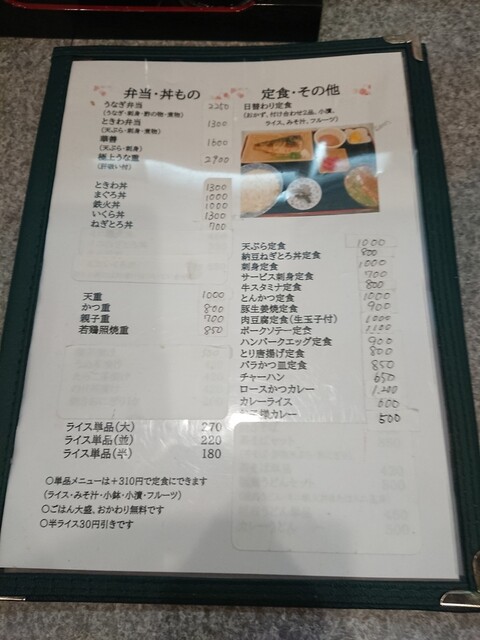 弁当・丼もの
うなぎ弁当 2250
(うなぎ・刺身・酢の物・煮物)
ときわ弁当 1300
(天ぷら・刺身・煮物)
華善 1600
(天ぷら・刺身)
極上うな重 2900
(肝吸い付)
ときわ丼 1300
まぐろ丼 1000
鉄火丼 1000
いくら丼 1300
ねぎとろ丼 700
天重 1000
かつ重 800
親子重 700
若鶏照焼重 850
ライス単品(大) 270
ライス単品(並) 220
ライス単品(半) 180
○単品メニューは+310円で定食にできます
(ライス・みそ汁・小鉢・小漬・フルーツ)
○ごはん大盛、おかわり無料です
○半ライス30円引きです
定食・その他
日替わり定食
(おかず、付け合わせ2品、小漬、
ライス、みそ汁、フルーツ)
天ぷら定食 1000
納豆ねぎとろ丼定食 800
刺身定食 1000
サービス刺身定食 700
牛スタミナ定食 800
とんかつ定食 1000
豚生姜焼定食 900
肉豆腐定食(生玉子付) 1000
ポークソテー定食 1100
ハンバークエッグ定食 900
とり唐揚げ定食 800
バラかつ皿定食 850
チャーハン 650
ロースかつカレー 1,200
カレーライス 600
カレー 500